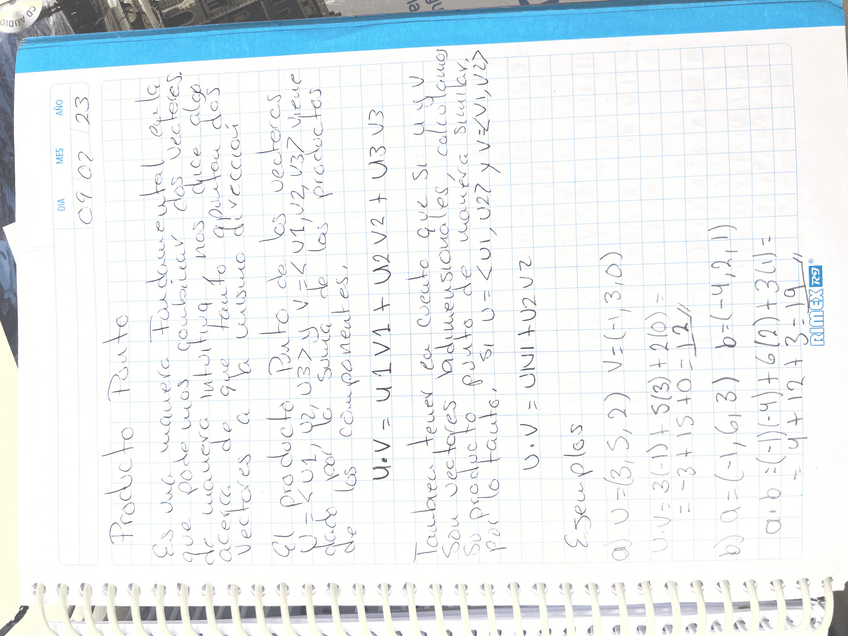 CD AUDIO
DIA MES AÑO
09 02 / 23
Producto Punto
Es una manera fundamental en la
que podemos combinar dos vectores.
de manera intuitiva, nos dice algo
acerca de que tanto apuntan dos
vectores a la misma dirección
El producto Punto de los vectores
U = <U1, U2, U3> y V = <U1, U2, U3> viene
dado por la suma de los productos
de los componentes.
U·V = U1V1 + U2V2 + U3V3
Tambien tener en cuenta que si u y v
Son vectores bidimensionales, calculamos
Su producto punto de manera similar.
Por lo tanto, si u = <U1, U2> y V = <V1, V2>
U·V = U1V1 + U2V2
Ejemplos
a) U = (3, 5, 2) V = (-1, 3, 0)
U·V = 3(-1) + 5(3) + 2(0) =
= -3 + 15 + 0 = 12 //
b) a = (-1, 6, 3) b = (-4, 2, 1)
a·b = (-1)(-4) + 6(2) + 3(1) =
= 4 + 12 + 3 = 19 //
RIMEX R9®